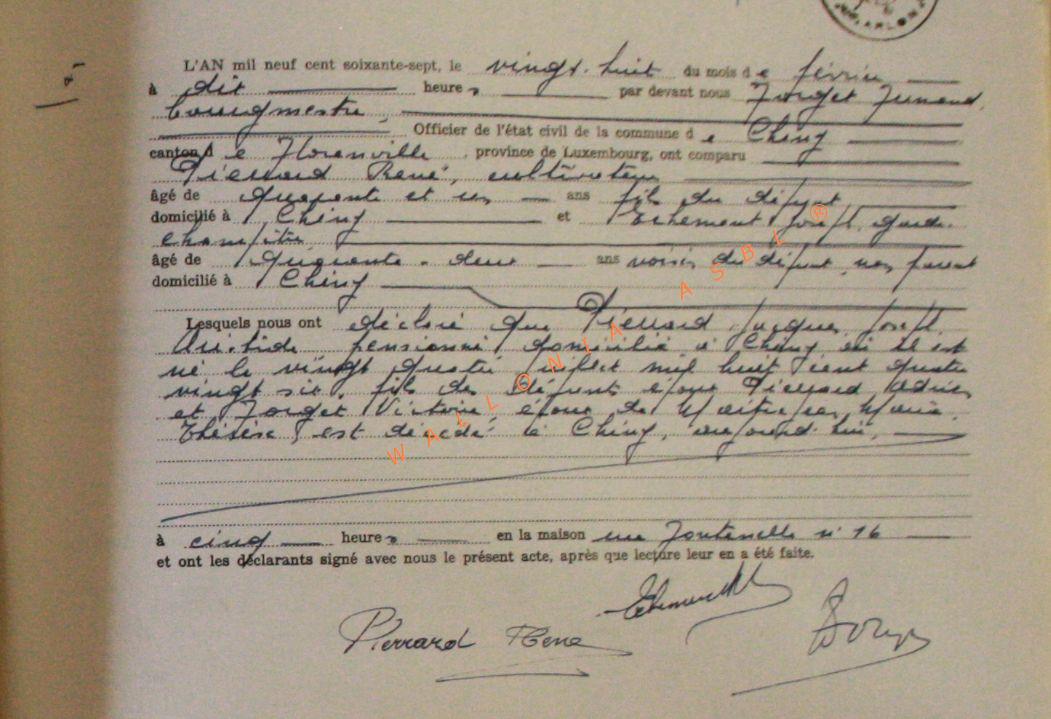 ARLON
L'AN mil neuf cent soixante-sept, le vingt-huit du mois de février
à dix heures, par devant nous Forget Fernand,
bourgmestre,
Officier de l'état civil de la commune de Chiny
canton de Florenville, province de Luxembourg, ont comparu
Pierrard René, cultivateur
âgé de quarante et un ans fils du défunt
domicilié à Chiny et Joseph, garde-
champêtre,
âgé de quarante-deux ans voisin du défunt, non parent
domicilié à Chiny
Lesquels nous ont déclaré que Pierrard Jacques Joseph
Aristide, pensionné, domicilié à Chiny où il est
né le vingt quatre juillet mil huit cent quatre
vingt six, fils de défunts époux Pierrard
et Forget Victoire, époux de Marie
Thérèse, est décédé à Chiny, aujourd'hui,
à cinq heures en la maison rue Fontenelle n° 16
et ont les déclarants signé avec nous le présent acte, après que lecture leur en a été faite.
Pierrard René
WALLONIA ASBL ®